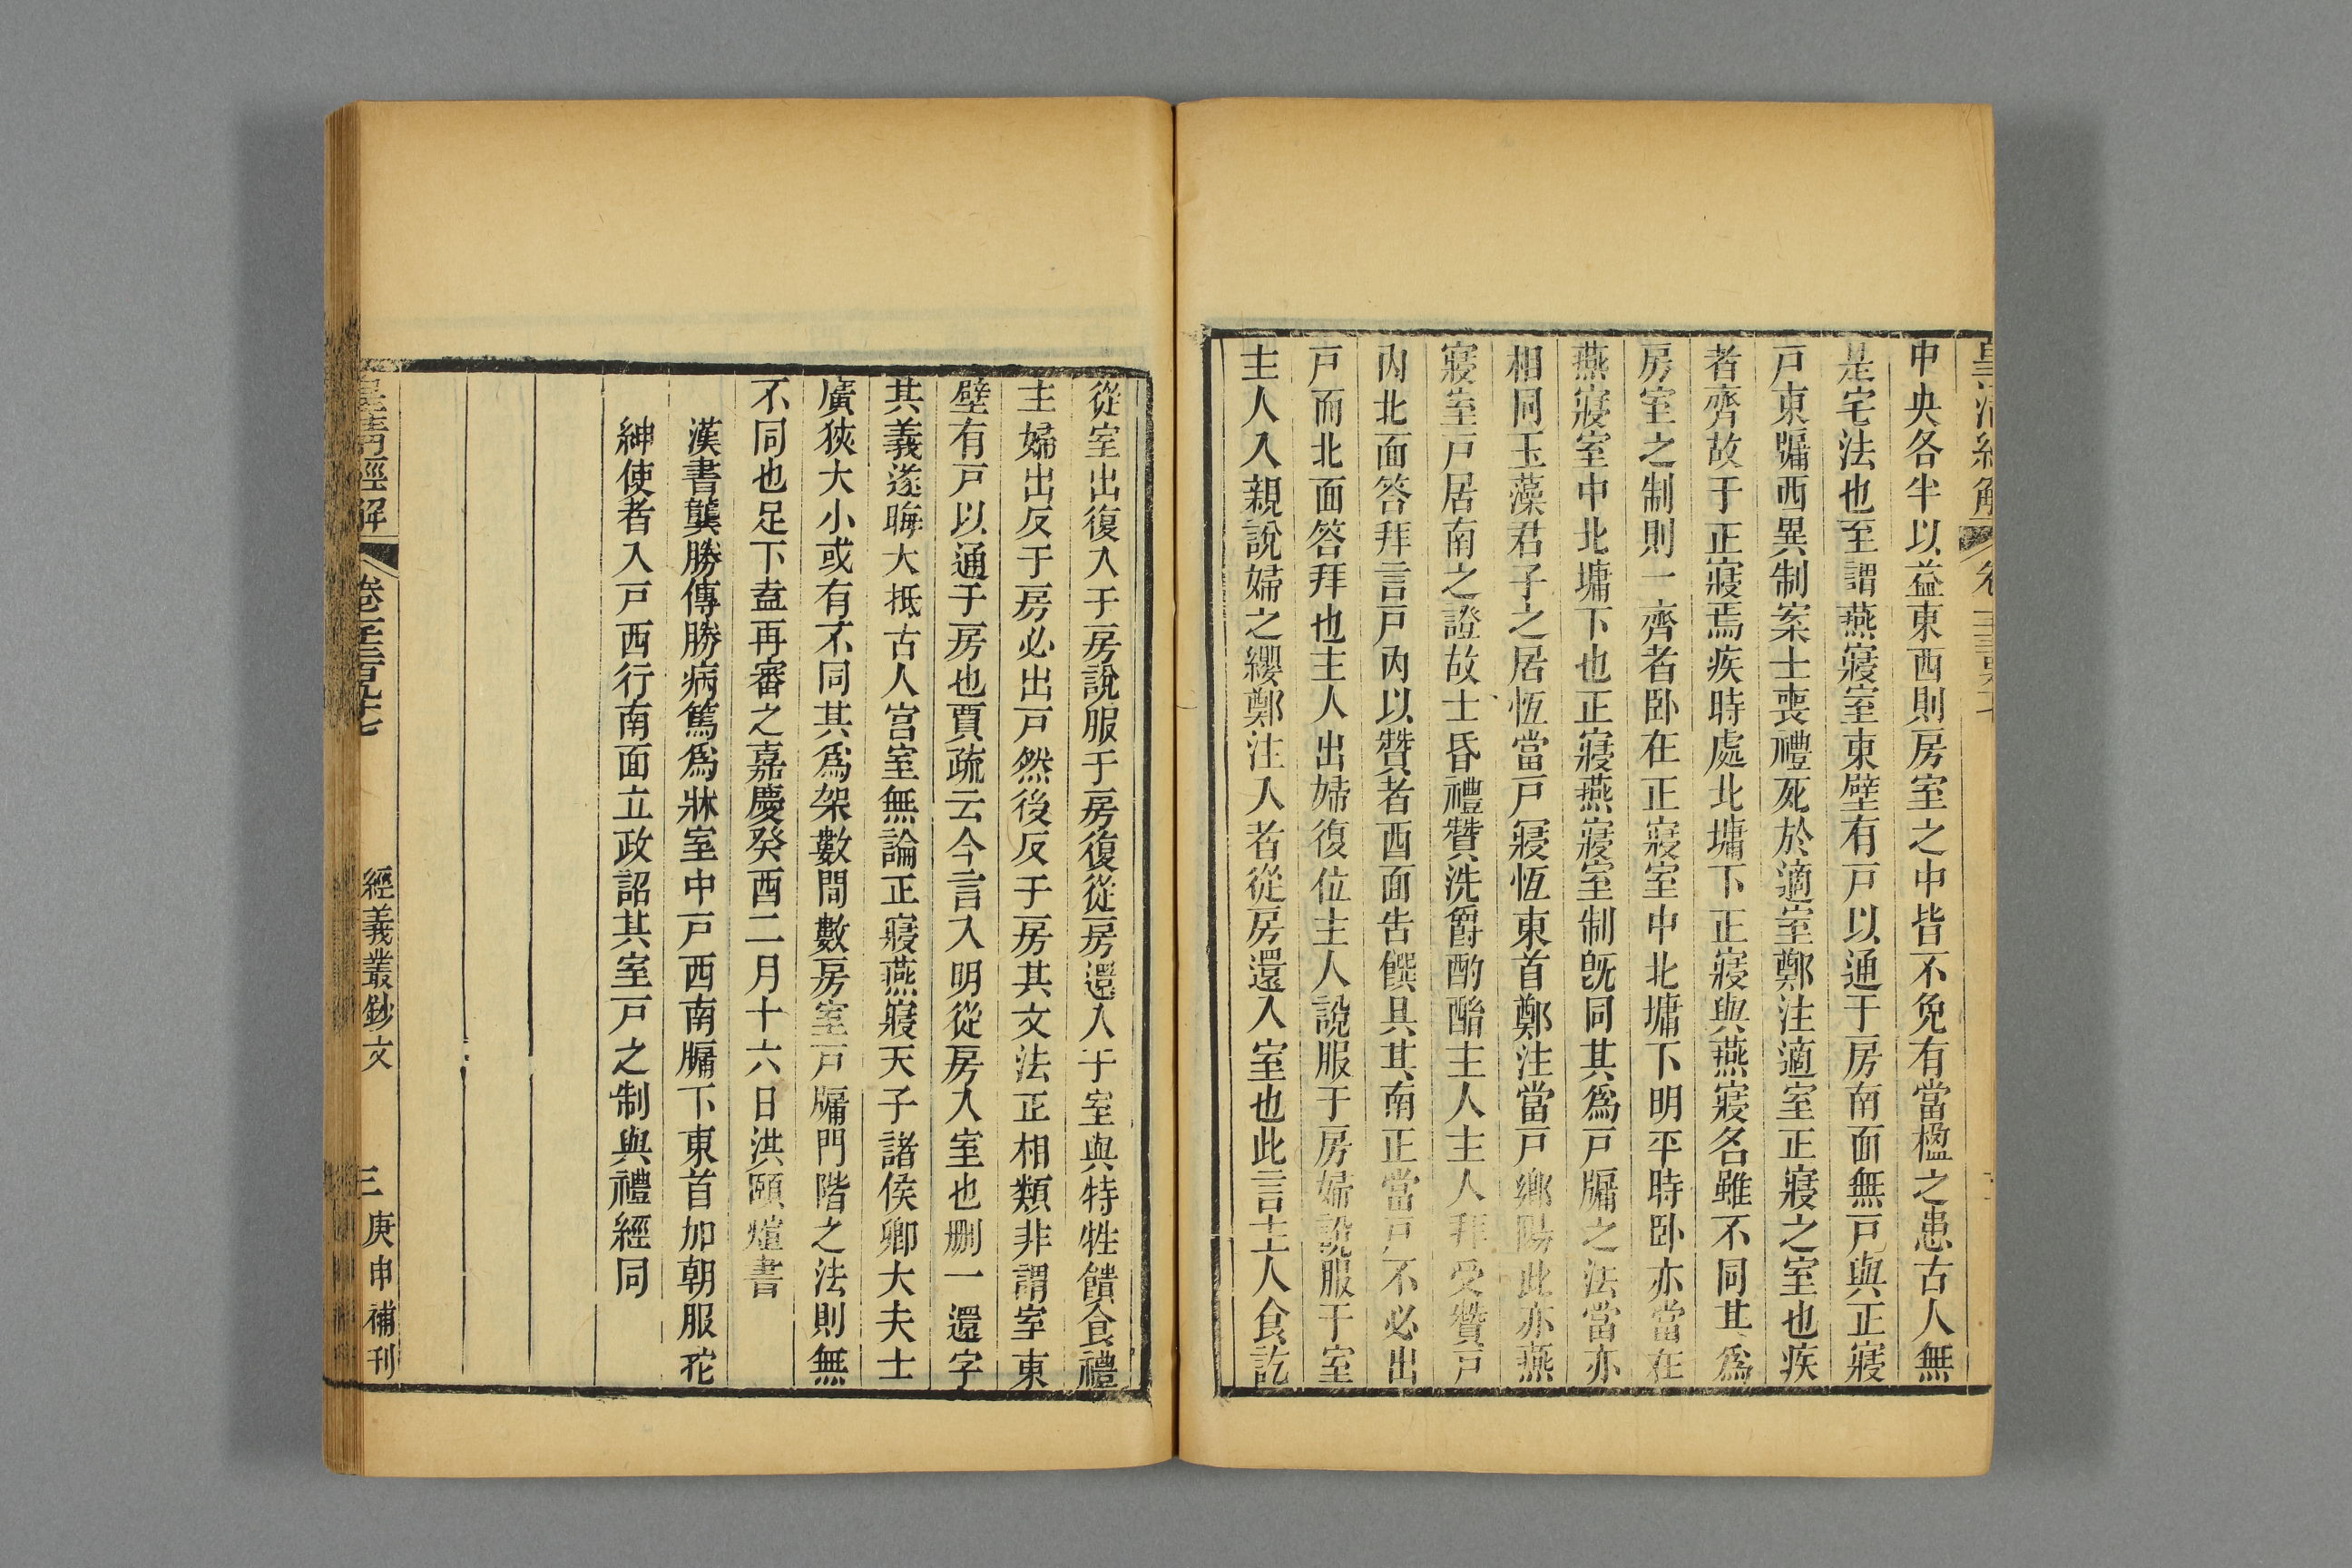 皇清經解
中央各半以益東西則房室之中皆不免有當楹之患古人無
是宅法也至謂燕寢室東壁有戸以通于房南面無戸與正寢
戸東牖西異制案士喪禮死於適室鄭注適室正寢之室也疾
者齊故于正寢焉疾時處北墉下正寢與燕寢名雖不同其爲
房室之制則一齊者卧在正寢室中北墉下明平時卧亦當在
燕寢室中北墉下也正寢燕寢室制旣同其爲戸牖之法當亦
相同玉藻君子之居恆當戸寢恆東首鄭注當戸鄉陽此亦燕
寢室戸居南之證故士昏禮贊洗爵酌酳主人主人拜受贊戸
內北面答拜言戸內以贊者西面告饌具其南正當戸不必出
戸而北面答拜也主人出婦復位主人說服于房婦說服于室
主人入親說婦之纓鄭注入者從房還入室也此言主人食訖
從室出復入于房說服于房復從房還入于室與特牲饋食禮
主婦出反于房必出戸然後反于房其文法正相類非謂室東
壁有戸以通于房也賈疏云今言入明從房入室也删一還字
其義遂晦大抵古人宫室無論正寢燕寢天子諸侯卿大夫士
廣狹大小或有不同其爲架數間數房室戸牖門階之法則無
不同也足下盍再審之嘉慶癸酉二月十六日洪頤煊書
漢書龔勝傳勝病篤爲牀室中戸西南牖下東首加朝服拕
紳使者入戸西行南面立政詔其室戸之制與禮經同
皇淸經解
卷一千三百九十七
經義叢鈔文
三
庚申補刊